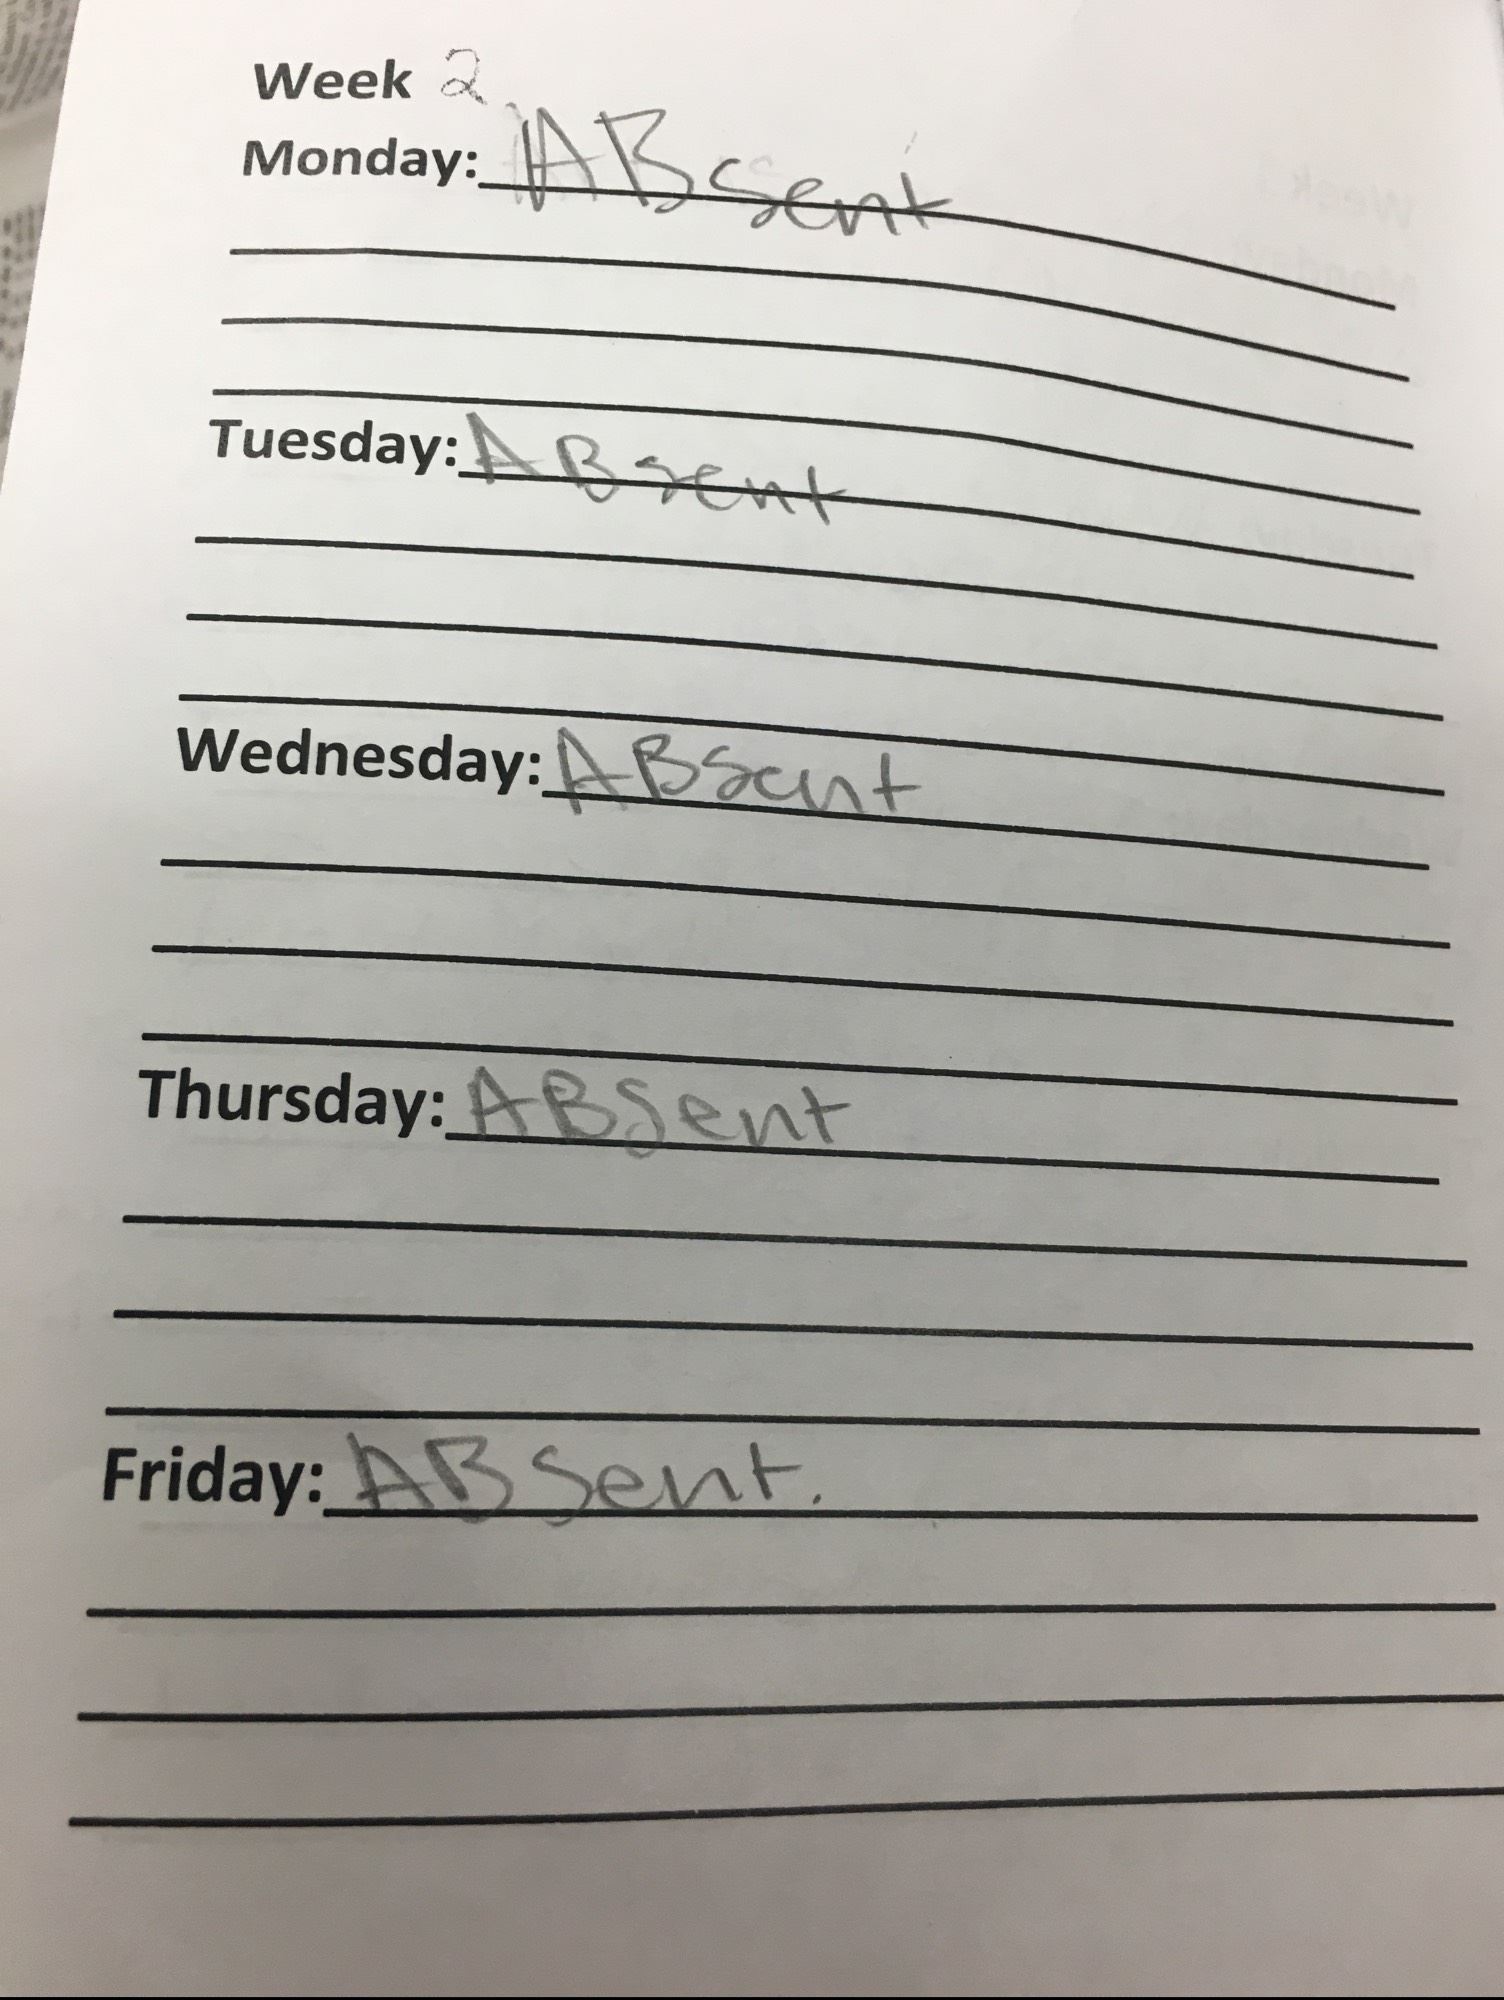 Week 2
Monday: ABsent
Tuesday: ABsent
Wednesday: ABsent
Thursday: ABSent
Friday: ABSent.